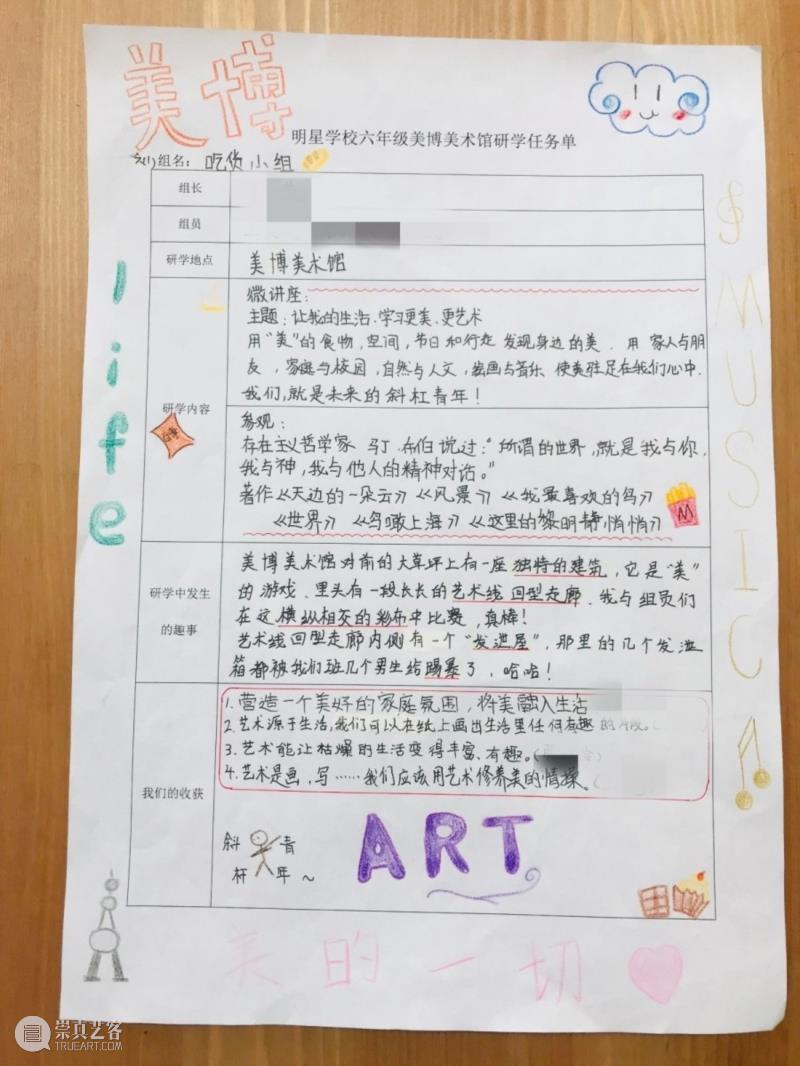 美博
明星学校六年级美博美术馆研学任务单
组名：吃货小组
组长
组员
研学地点
美博美术馆
研学内容
微讲座：
主题：让我的生活、学习更美、更艺术
用“美”的食物，空间，节日和行走 发现身边的美．用 家人与朋
友，家庭与校园，自然与人文，绘画与音乐 使美驻足在我们心中．
我们，就是未来的斜杠青年！
参观：
存在主义哲学家 马丁·布伯说过：“所谓的世界，就是我与你，
我与神，我与他人的精神对话。”
著作《天边的一朵云》《风景》《我最喜欢的鸟》
《世界》《鸟瞰上海》《这里的黎明静悄悄》
研学中发生
的趣事
美博美术馆对前的大草坪上有一座独特的建筑，它是“美”
的游戏．里头有一段长长的艺术线回型走廊．我与组员们
在这横纵相交的彩布中比赛，真棒！
艺术线回型走廊内侧有一个“发泄屋”，那里的几个发泄
箱都被我们班几个男生给踢暴了，哈哈！
我们的收获
1．营造一个美好的家庭氛围，将美融入生活
2．艺术源于生活，我们可以在纸上画出生活里任何有趣的片段。
3．艺术能让枯燥的生活变得丰富、有趣。
4．艺术是画，写……我们应该用艺术修养美的情操。
斜杆青年～
ART
life
MUSIC
M
美的一切
崇真艺客
TRUEART.COM